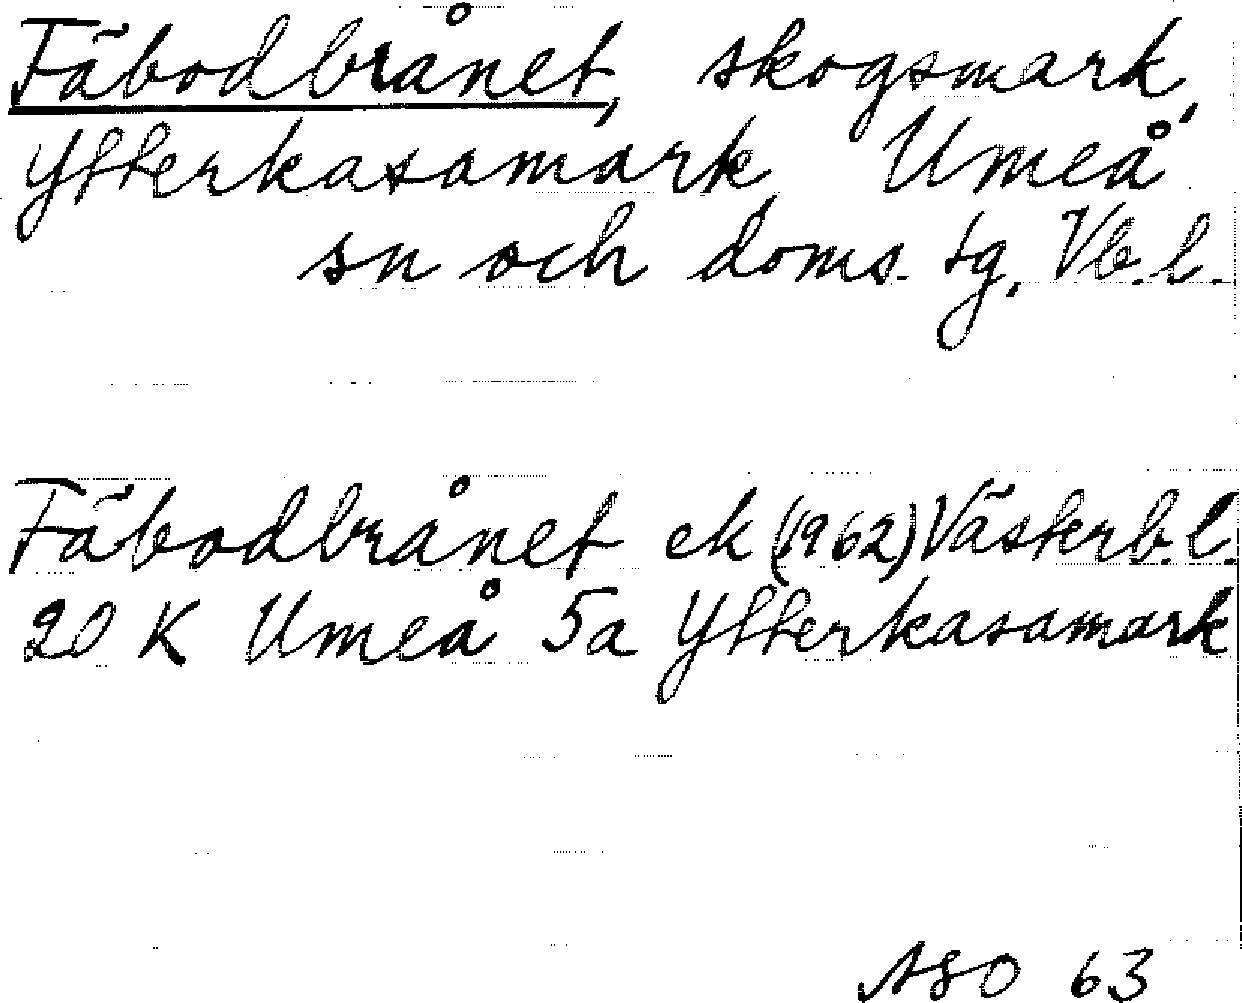 Fäbodbrånet, skogsmark,
Ytterkasamark Umeå
sn och doms. tg, Vb.l.
Fäbodbrånet ek (1962) Västerb.l.
20 K Umeå 5a Ytterkasamark
ASO 63